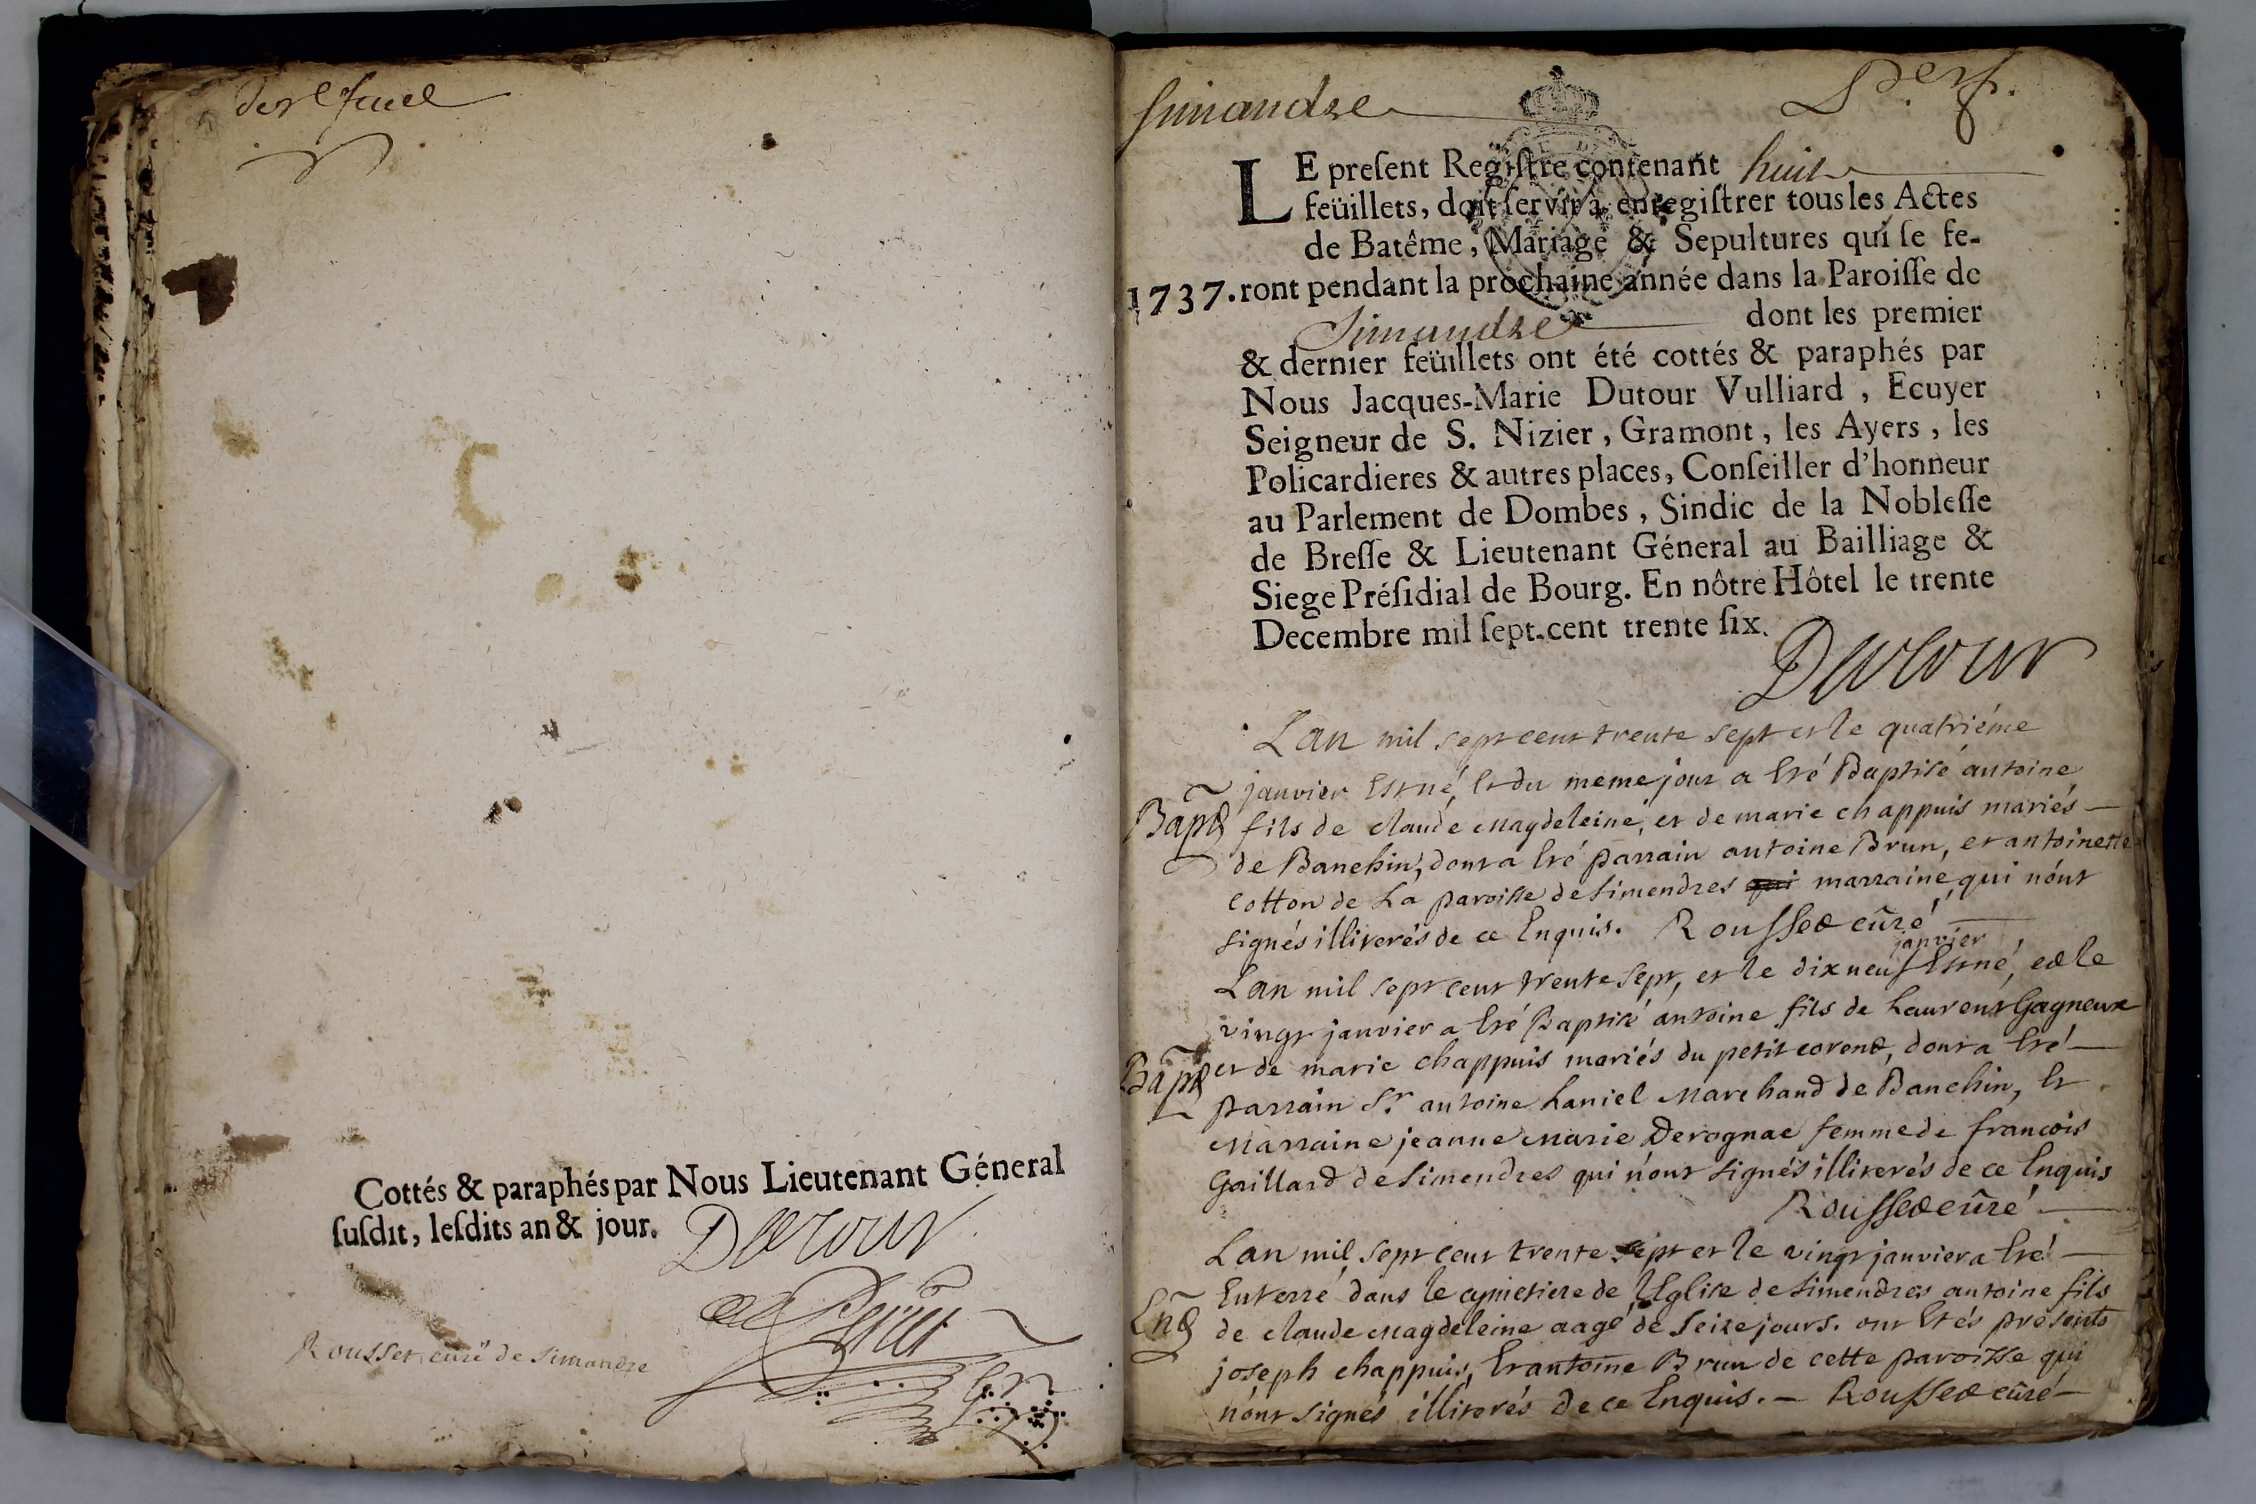 Cottés & paraphés par Nous Lieutenant Géneral
ſuſdit, leſdits an & jour.
Dutour
Rousset curé de Simandre
Simandre
LE preſent Regiſtre contenant huit
feüillets, doit ſervir à enregiſtrer tous les Actes
de Batême, Mariage & Sepultures qui ſe fe-
1737. ront pendant la prochaine année dans la Paroiſſe de
Simandre dont les premier
& dernier feüillets ont été cottés & paraphés par
Nous Jacques-Marie Dutour Vulliard, Ecuyer
Seigneur de S. Nizier, Gramont, les Ayers, les
Policardieres & autres places, Conſeiller d'honneur
au Parlement de Dombes, Sindic de la Nobleſſe
de Breſſe & Lieutenant Géneral au Bailliage &
Siege Préſidial de Bourg. En nôtre Hôtel le trente
Decembre mil ſept-cent trente ſix.
Dutour
Lan mil sept cent trente sept et le quatriéme
janvier Est né, Et du meme jour a Eté Baptisé antoine
Bapt fils de claude Magdeleine, et de marie chappuis mariés
de Banchin, dont a Eté parrain antoine Brun, et antoinette
cotton de La paroisse de Simendres qui marraine qui n'ont
signés illiterés de ce Enquis. Rousset curé
janvier
Lan mil sept cent trente sept, et le dix neuf Est né, et le
vingt janvier a Eté Baptisé antoine fils de Laurent Gagneux
Bapt et de marie chappuis mariés du petit corent, dont a Eté
parrain Sr. antoine Laniel Marchand de Banchin, Et
Marraine jeanne Marie Derognat femme de francois
Gaillard de Simendres qui n'ont signés illiterés de ce Enquis
Rousset curé
Lan mil sept cent trente sept et le vingt janvier a Eté
Enterré dans le cymetiere de l'Eglise de Simendres antoine fils
de claude Magdeleine aagé de Seize jours. ont Etés présents
joseph chappuis, Et antoine Brun de cette paroisse qui
n'ont signés illiterés de ce Enquis. Rousset curé